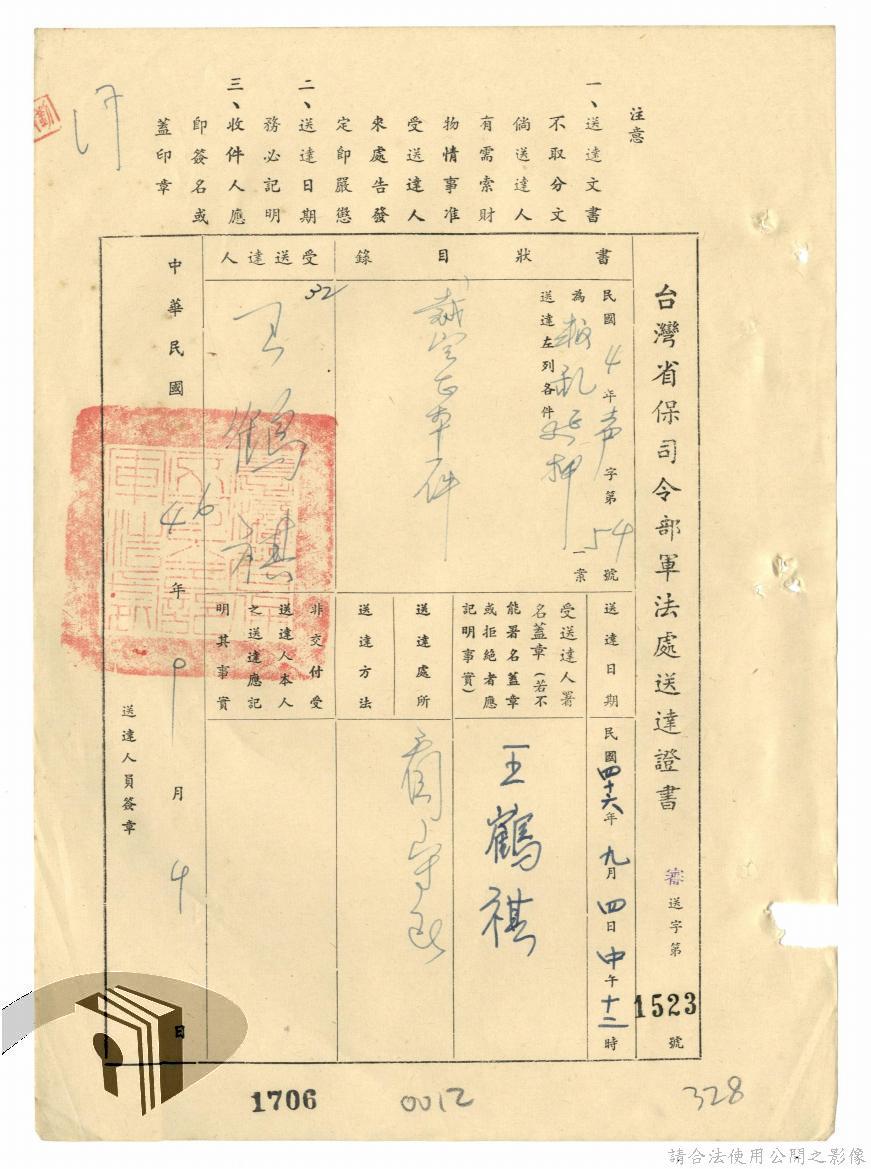 注意
一、送達文書
不取分文
倘送達人
有需索財
物情事准
受送達人
來處告發
定即嚴懲
二、送達日期
務必記明
三、收件人應
即簽名或
蓋印章
台灣省保司令部軍法處送達證書
審送字第1523號
書狀目錄
民國4年声字第54號
為叛乱延押一案
送達左列各件
裁定正本一件
受送達人
32
王鶴祺
送達日期
民國四十六年九月四日中午十二時
受送達人署
名蓋章(若不
能署名蓋章
或拒絕者應
記明事實)
王鶴祺
送達處所
看守所
送達方法
非交付受
送達人本人
之送達應記
明其事實
中華民國46年9月4日
送達人員簽章
1706
0012
328
請合法使用公開之影像